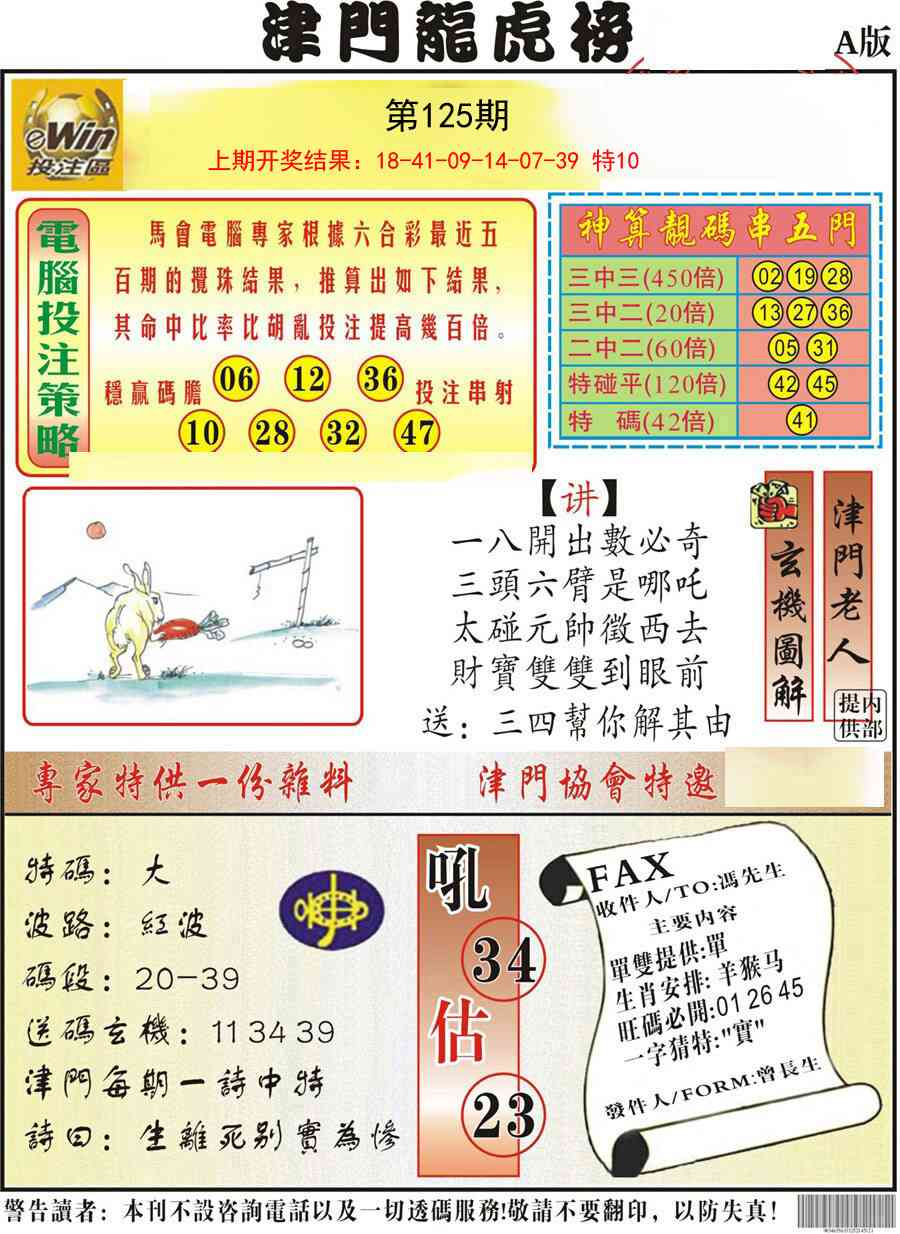 津門龍虎榜
A版
eWin
投注區
第125期
上期开奖结果：18-41-09-14-07-39 特10
電腦投注策略
馬會電腦專家根據六合彩最近五
百期的攪珠結果，推算出如下結果，
其命中比率比胡亂投注提高幾百倍。
穩贏碼膽 06 12 36 投注串射
10 28 32 47
神算靚碼串五門
三中三(450倍) 02 19 28
三中二(20倍) 13 27 36
二中二(60倍) 05 31
特碰平(120倍) 42 45
特 碼(42倍) 41
【讲】
一八開出數必奇
三頭六臂是哪吒
太碰元帥徵西去
財寶雙雙到眼前
送：三四幫你解其由
玄機圖解
津門老人
内部提供
專家特供一份雜料
津門協會特邀
特碼：大
波路：紅波
碼段：20-39
送碼玄機：11 34 39
津門每期一詩中特
詩曰：生離死别實為慘
吼
34
估
23
FAX
收件人/TO:馮先生
主要内容
單雙提供:單
生肖安排:羊猴马
旺碼必開:01 26 45
一字猜特:"實"
發件人/FORM:曾長生
警告讀者：本刊不設咨詢電話以及一切透碼服務!敬請不要翻印，以防失真！